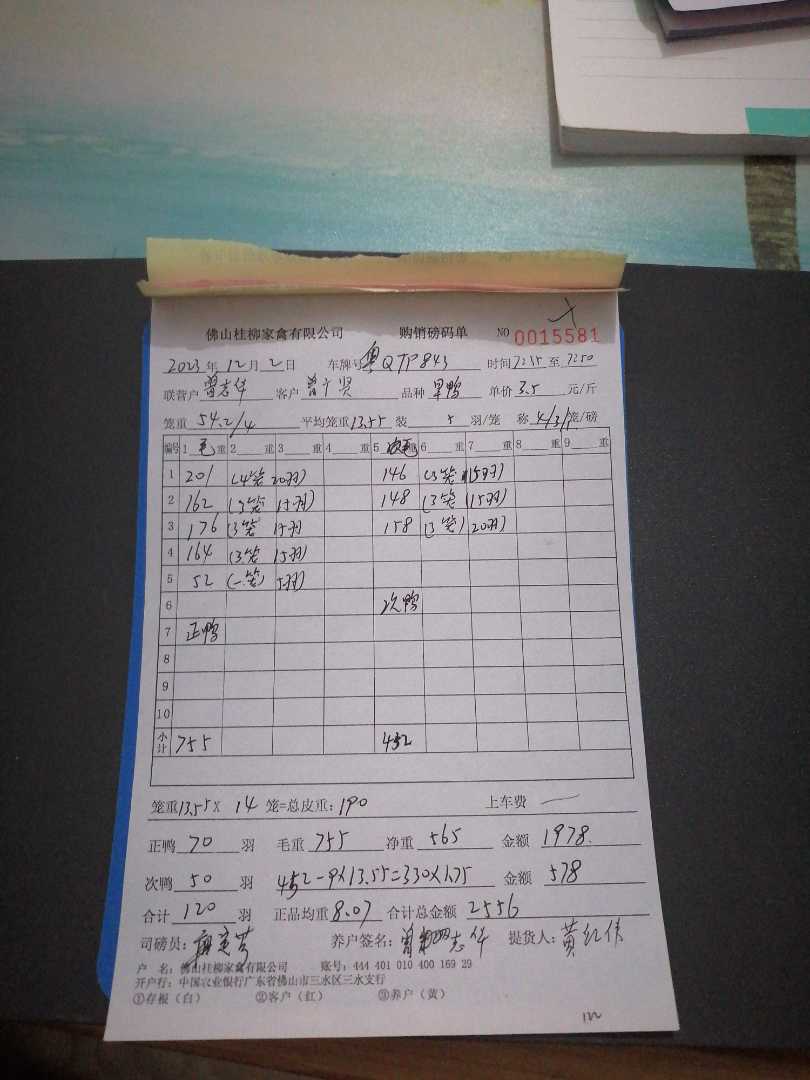 佛山桂柳家禽有限公司 购销磅码单 NO 0015581
2023年12月2日 车牌号 粤QTP843 时间 7:35 至 7:50
联营户 曾志华 客户 曾贤 品种 单价 3.5 元/斤
笼重 54.2/4 平均笼重 13.55 装 5 羽/笼 称 4/3/1 笼/磅
编号 1 毛 重 2 重 3 重 4 重 5 次毛 重 6 重 7 重 8 重 9 重
1 201 (4笼 20羽) 146 (3笼 15羽)
2 162 (3笼 15羽) 148 (3笼 15羽)
3 176 (3笼 15羽 158 (3笼) 20羽)
4 164 (3笼 15羽)
5 52 (一笼) 5羽)
6 次鸭
7 正鸭
8
9
10
小计 755 452
笼重 13.55 X 14 笼=总皮重: 190 上车费 —
正鸭 70 羽 毛重 755 净重 565 金额 1978.
次鸭 50 羽 452-9X13.55=330X1.75 金额 578
合计 120 羽 正品均重 8.07 合计总金额 2556
司磅员: 养户签名: 曾 志华 提货人: 黄红伟
户 名: 佛山桂柳家禽有限公司 账号: 444 401 010 400 169 29
开户行: 中国农业银行广东省佛山市三水区三水支行
①存根（白） ②客户（红） ③养户（黄）